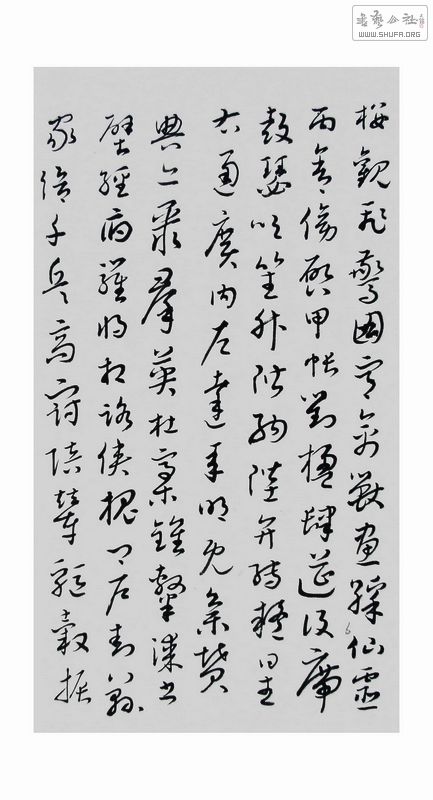 書藝公社
WWW.SHUFA.ORG
楼觀飛驚圖寫禽獸畫綵仙靈
丙舍傍啟甲帳對楹肆筵設席
鼓瑟吹笙升階納陛弁轉疑星
右通廣内左達承明既集墳
典亦聚群英杜稾鍾隸漆書
壁經府羅將相路俠槐卿户封八縣
家給千兵高冠陪輦驅轂振